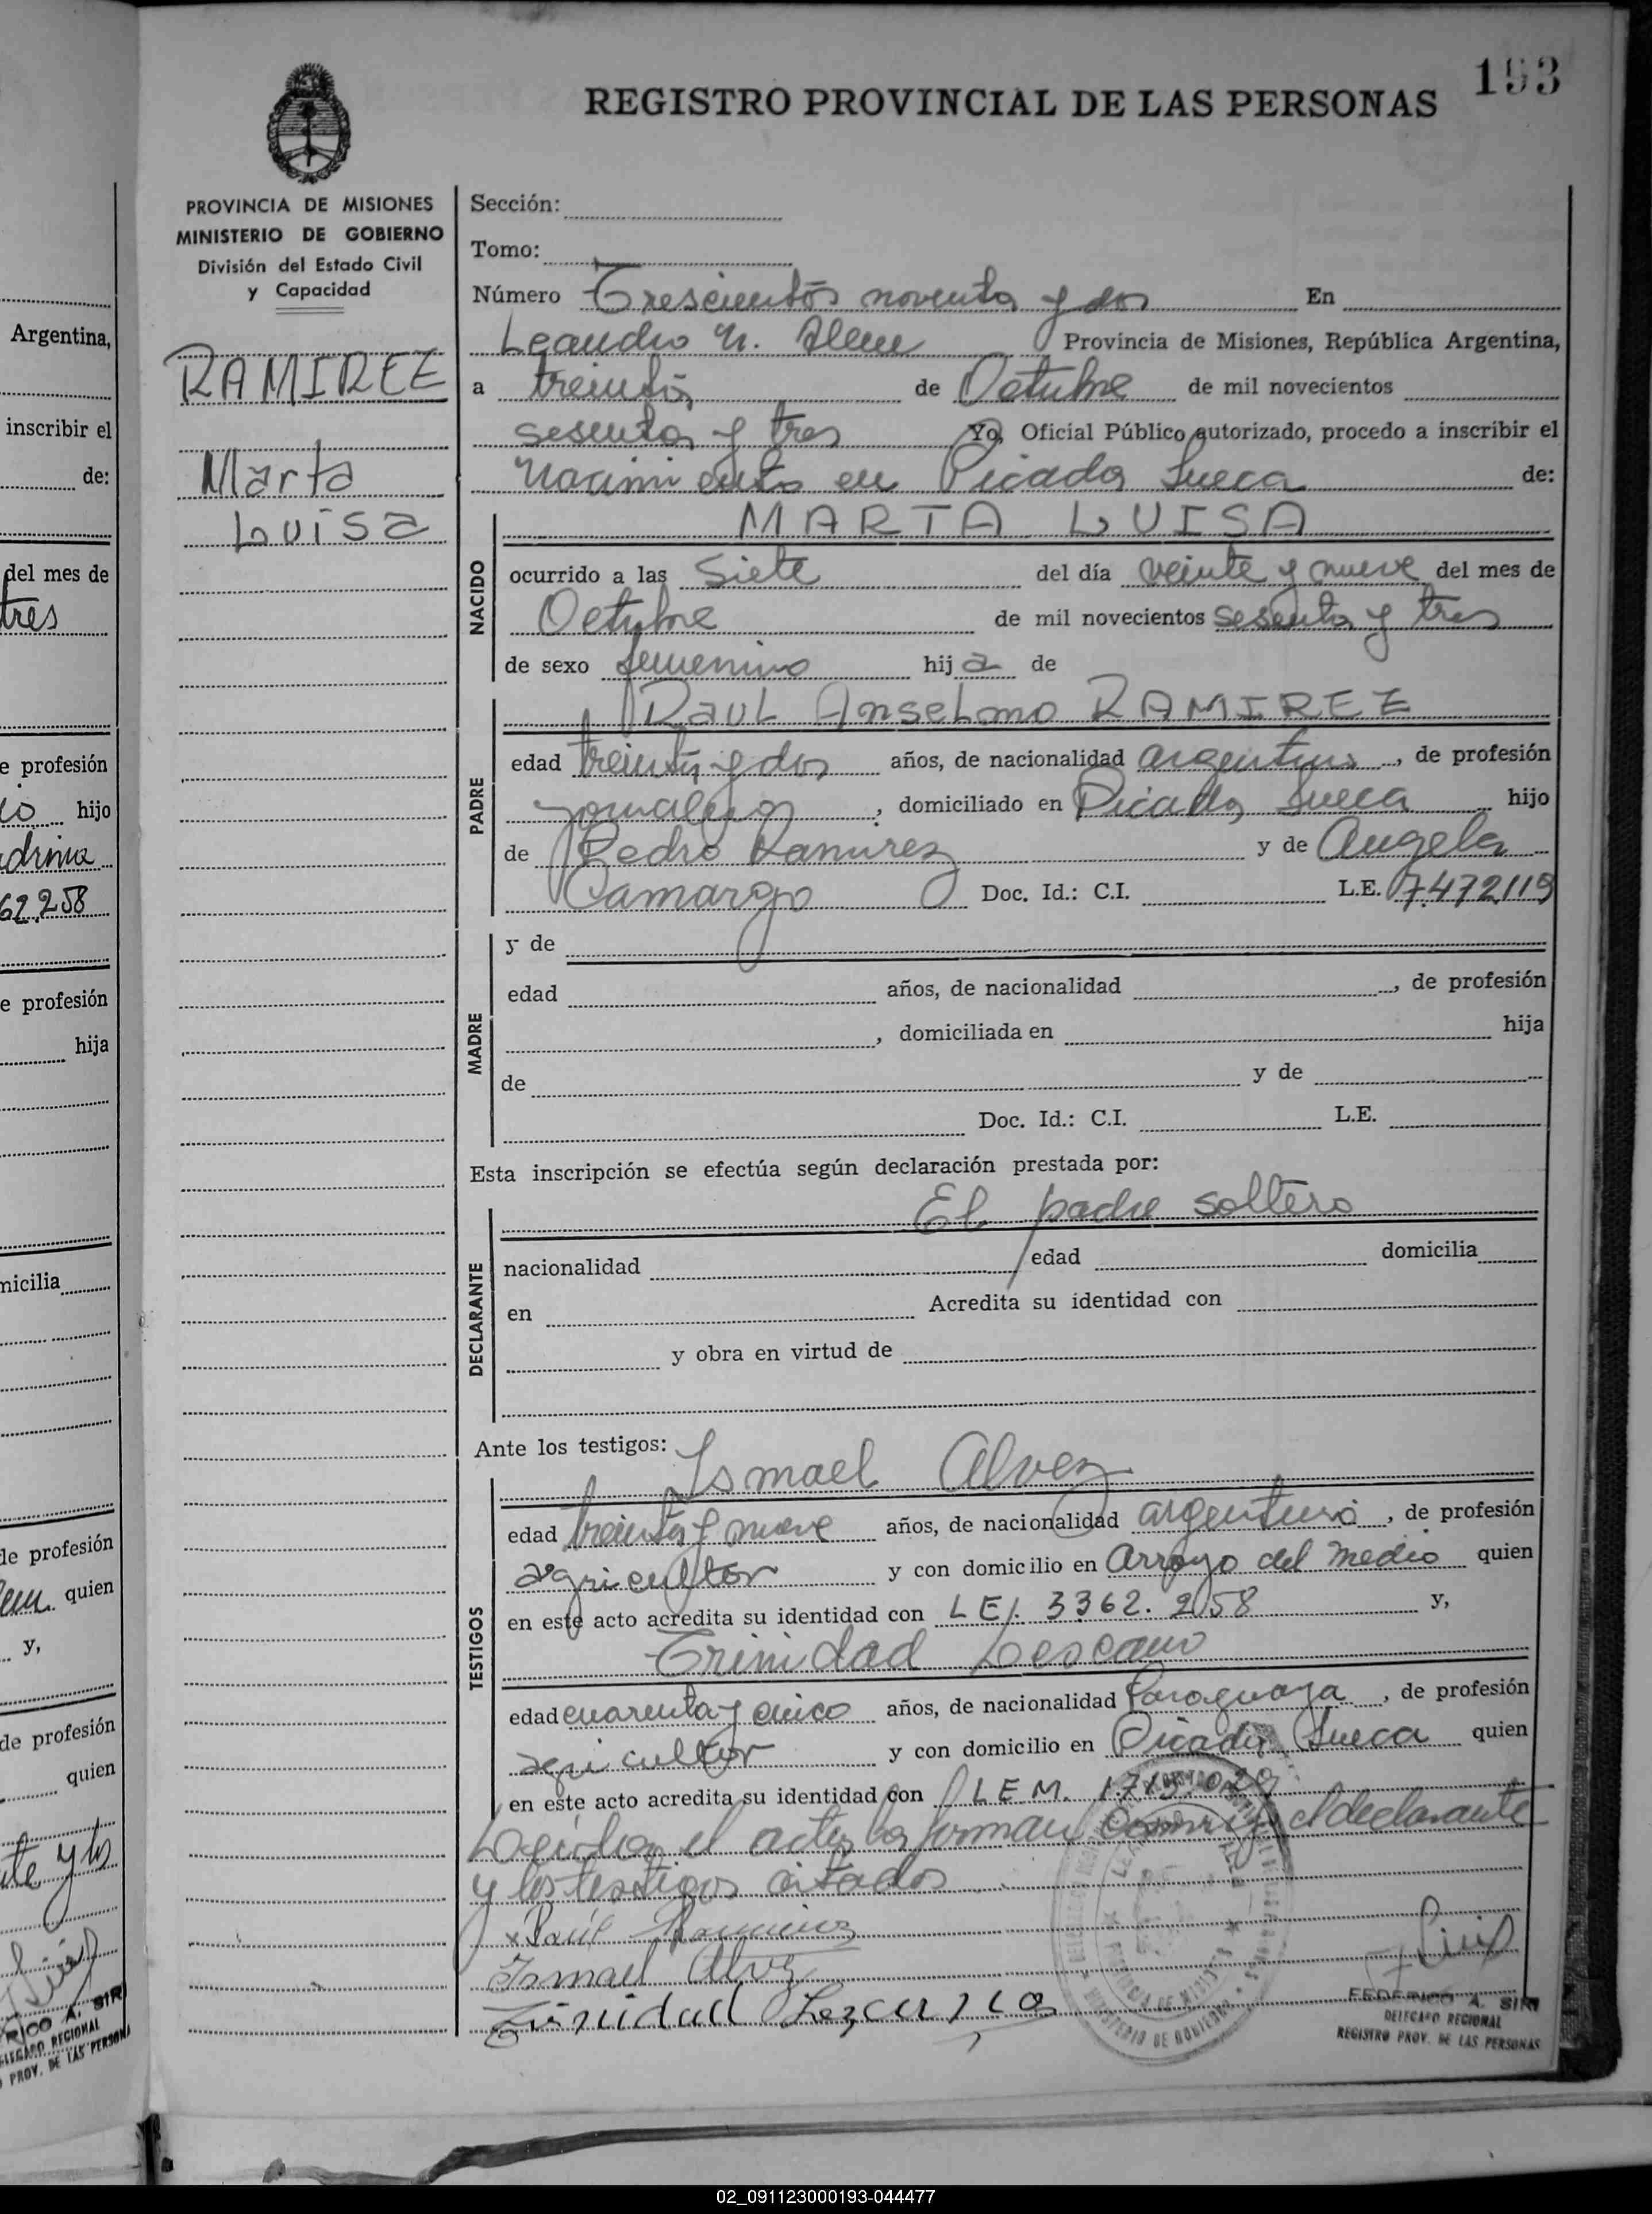 193
REGISTRO PROVINCIAL DE LAS PERSONAS
PROVINCIA DE MISIONES
MINISTERIO DE GOBIERNO
División del Estado Civil
y Capacidad
RAMIREZ
Marta
Luisa
Sección:
Tomo:
Número Trescientos noventa y dos En
Leandro N. Alem Provincia de Misiones, República Argentina,
a treinta de Octubre de mil novecientos
sesenta y tres Yo, Oficial Público autorizado, procedo a inscribir el
nacimiento en Picada Sueca de:
NACIDO
MARTA LUISA
ocurrido a las siete del día veinte y nueve del mes de
Octubre de mil novecientos sesenta y tres
de sexo femenino hija de
PADRE
Raul Anselmo RAMIREZ
edad treinta y dos años, de nacionalidad argentino, de profesión
jornalero, domiciliado en Picada Sueca hijo
de Pedro Ramirez y de Angela
Camargo Doc. Id.: C.I. L.E. 7.472119
MADRE
y de
edad años, de nacionalidad , de profesión
, domiciliada en hija
de y de
Doc. Id.: C.I. L.E.
Esta inscripción se efectúa según declaración prestada por:
DECLARANTE
El padre soltero
nacionalidad edad domicilia
en Acredita su identidad con
y obra en virtud de
Ante los testigos:
TESTIGOS
Ismael Alvez
edad treinta y nueve años, de nacionalidad argentino, de profesión
agricultor y con domicilio en Arroyo del Medio quien
en este acto acredita su identidad con LE. 3362.258 y,
Trinidad Lescano
edad cuarenta y cinco años, de nacionalidad Paraguaya, de profesión
agricultor y con domicilio en Picada Sueca quien
en este acto acredita su identidad con LEM.
Leida el acta la firman conmigo el declarante
y los testigos citados
x Raúl Ramirez
Ismael Alvez
Trinidad Lezcano
FEDERICO A. SIRI
DELEGADO REGIONAL
REGISTRO PROV. DE LAS PERSONAS
Argentina,
inscribir el
de:
del mes de
tres
e profesión
hijo
62.258
e profesión
hija
micilia
de profesión
quien
y,
de profesión
quien
02_091123000193-044477